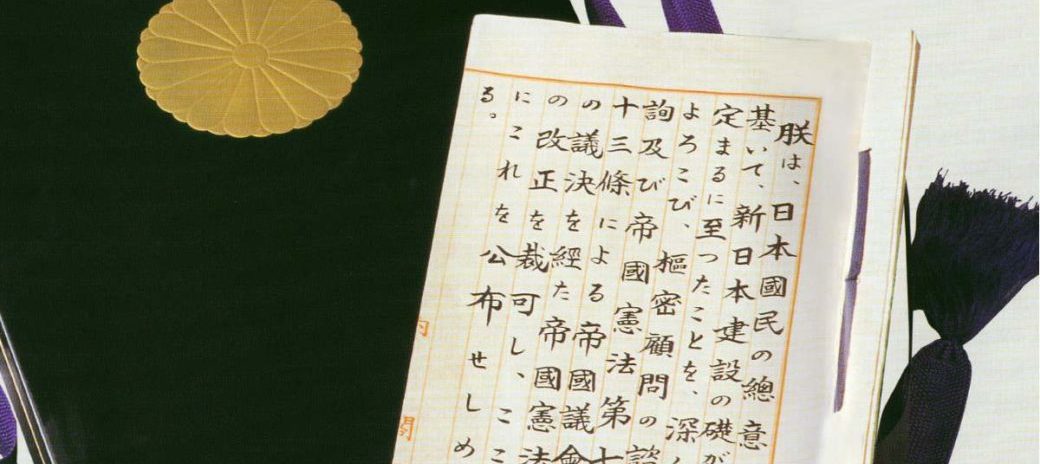 朕は、日本國民の總意
基いて、新日本建設の礎が
定まるに至つたことを、深く
よろこび、樞密顧問の諮
詢及び帝國憲法第七
十三條による帝國議會
の議決を經た帝國憲法
の改正を裁可し、ここ
にこれを公布せしめ
る。